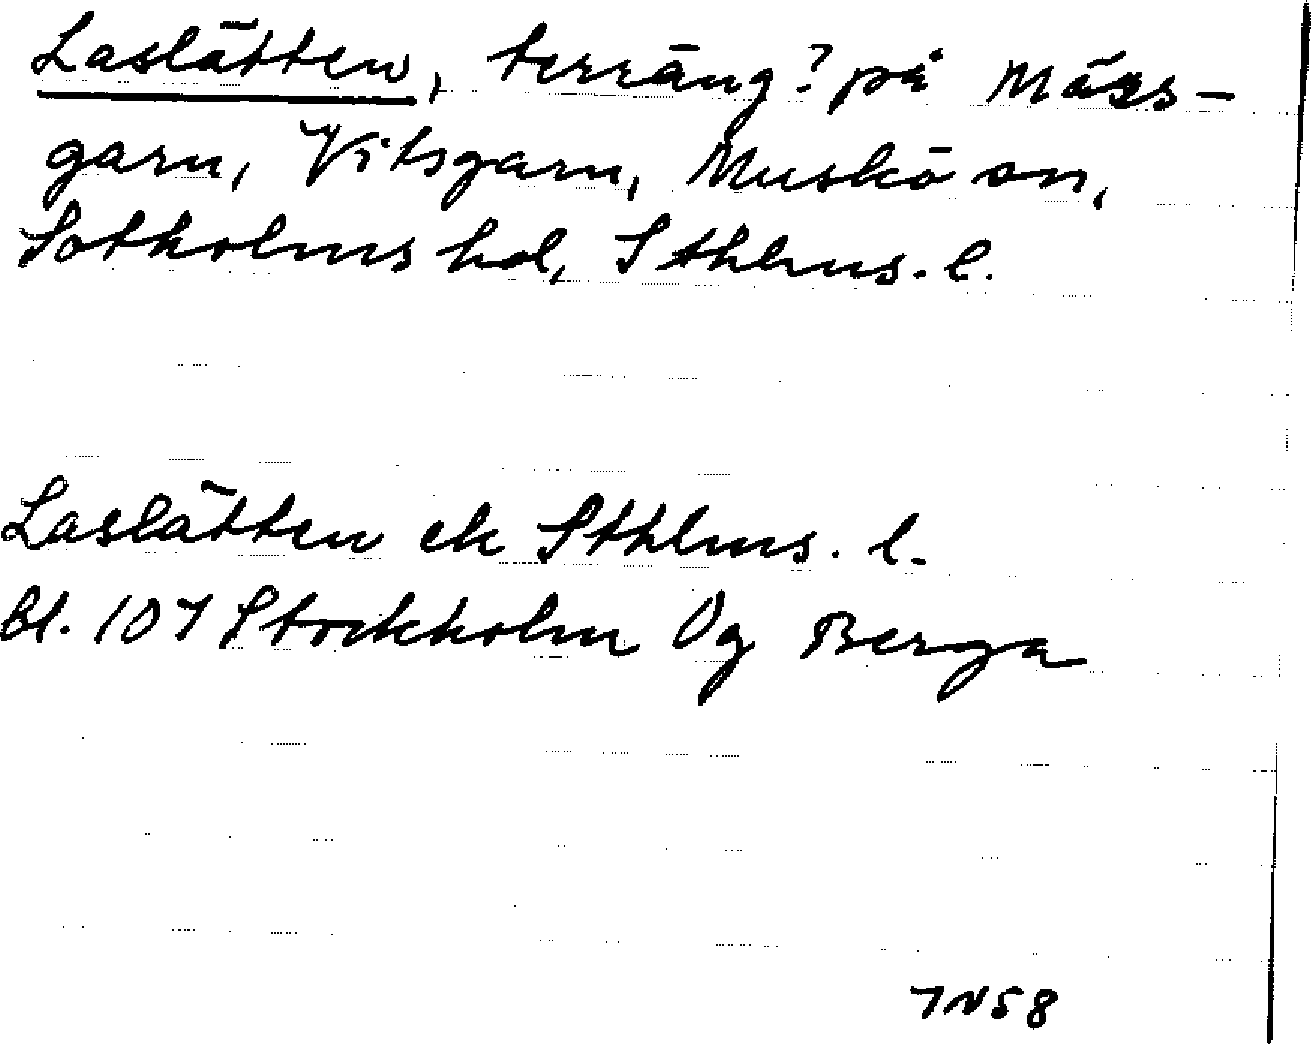 Laslätten, terräng? på Mäss-
garn, Vitsgarn, Muskö sn,
Sotholms hd, Sthlms. l.
Laslätten ek Sthlms. l.
bl. 107 Stockholm Og Berga
7N58